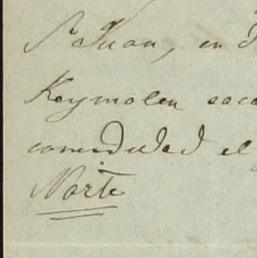 Sn Juan, en
Keymolen
comodidad el
Norte